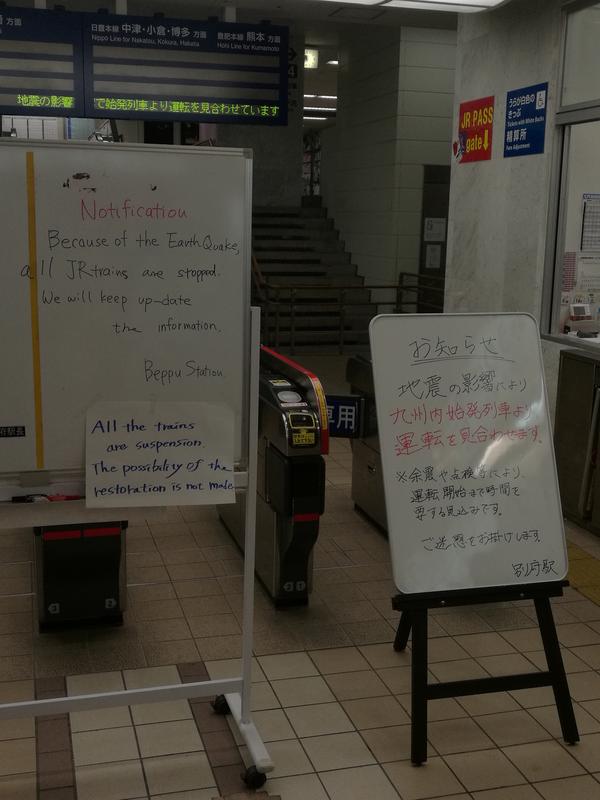 方面
日豊本線 中津・小倉・博多 方面
Nippō Line for Nakatsu, Kokura, Hakata
豊肥本線 熊本 方面
Hōhi Line for Kumamoto
地震の影響で始発列車より運転を見合わせています
JR PASS
gate
うらが白色の
きっぷ
Tickets with White Backs
精算所
Fare Adjustment
Notification
Because of the EarthQuake,
all JR trains are stopped.
We will keep up-date
the information.
Beppu Station
All the trains
are suspension.
The possibility of the
restoration is not made
専用
お知らせ
地震の影響により
九州内始発列車より
運転を見合わせます。
※余震や点検等により、
運転開始まで時間を
要する見込みです。
ご迷惑をお掛けします
別府駅